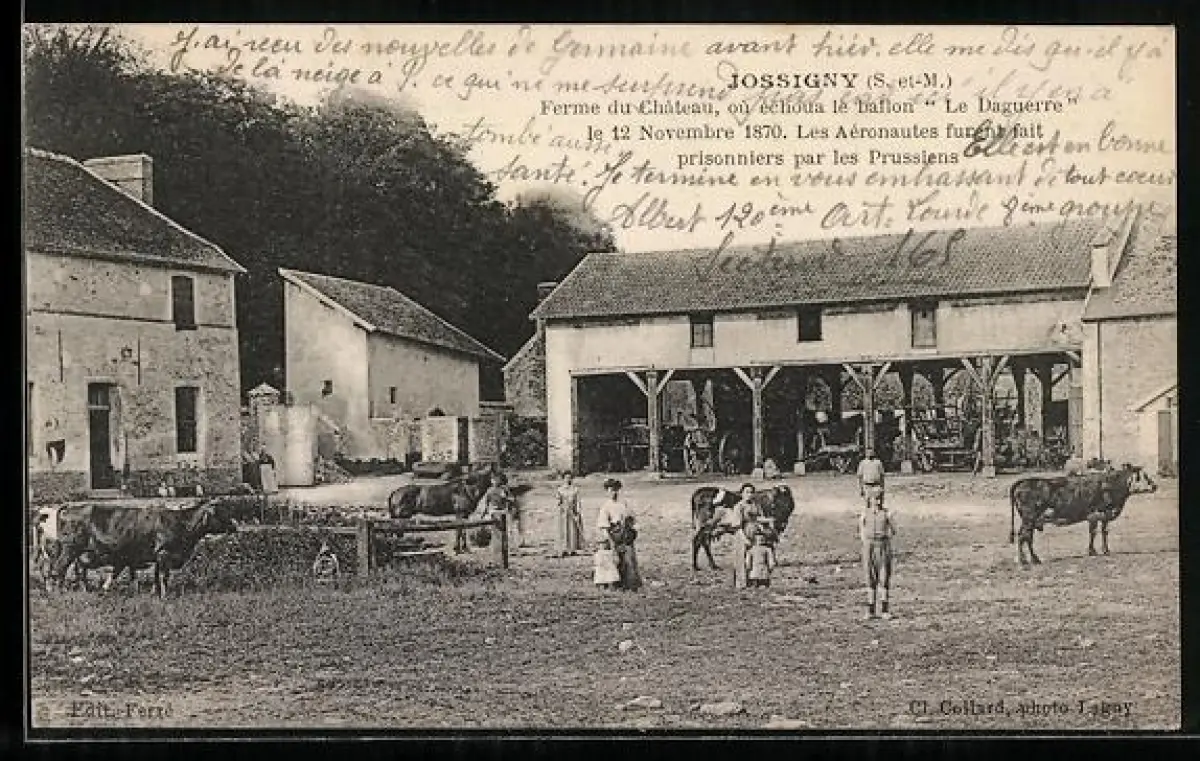 J'ai recu des nouvelles de Germaine avant hier. elle me dis qu'il y à
de la neige à P. ce qui ne me surprend il y en a
JOSSIGNY (S.-et-M.)
Ferme du Château, où échoua le ballon " Le Daguerre"
le 12 Novembre 1870. Les Aéronautes furent fait
prisonniers par les Prussiens
tombé aussi Elle est en bonne
santé. Je termine en vous embrassant de tout coeur
Albert 120ème Art. Lourde 8ème groupe
Secteur 168
Edit. Ferré
Cl. Collard, photo Lagny